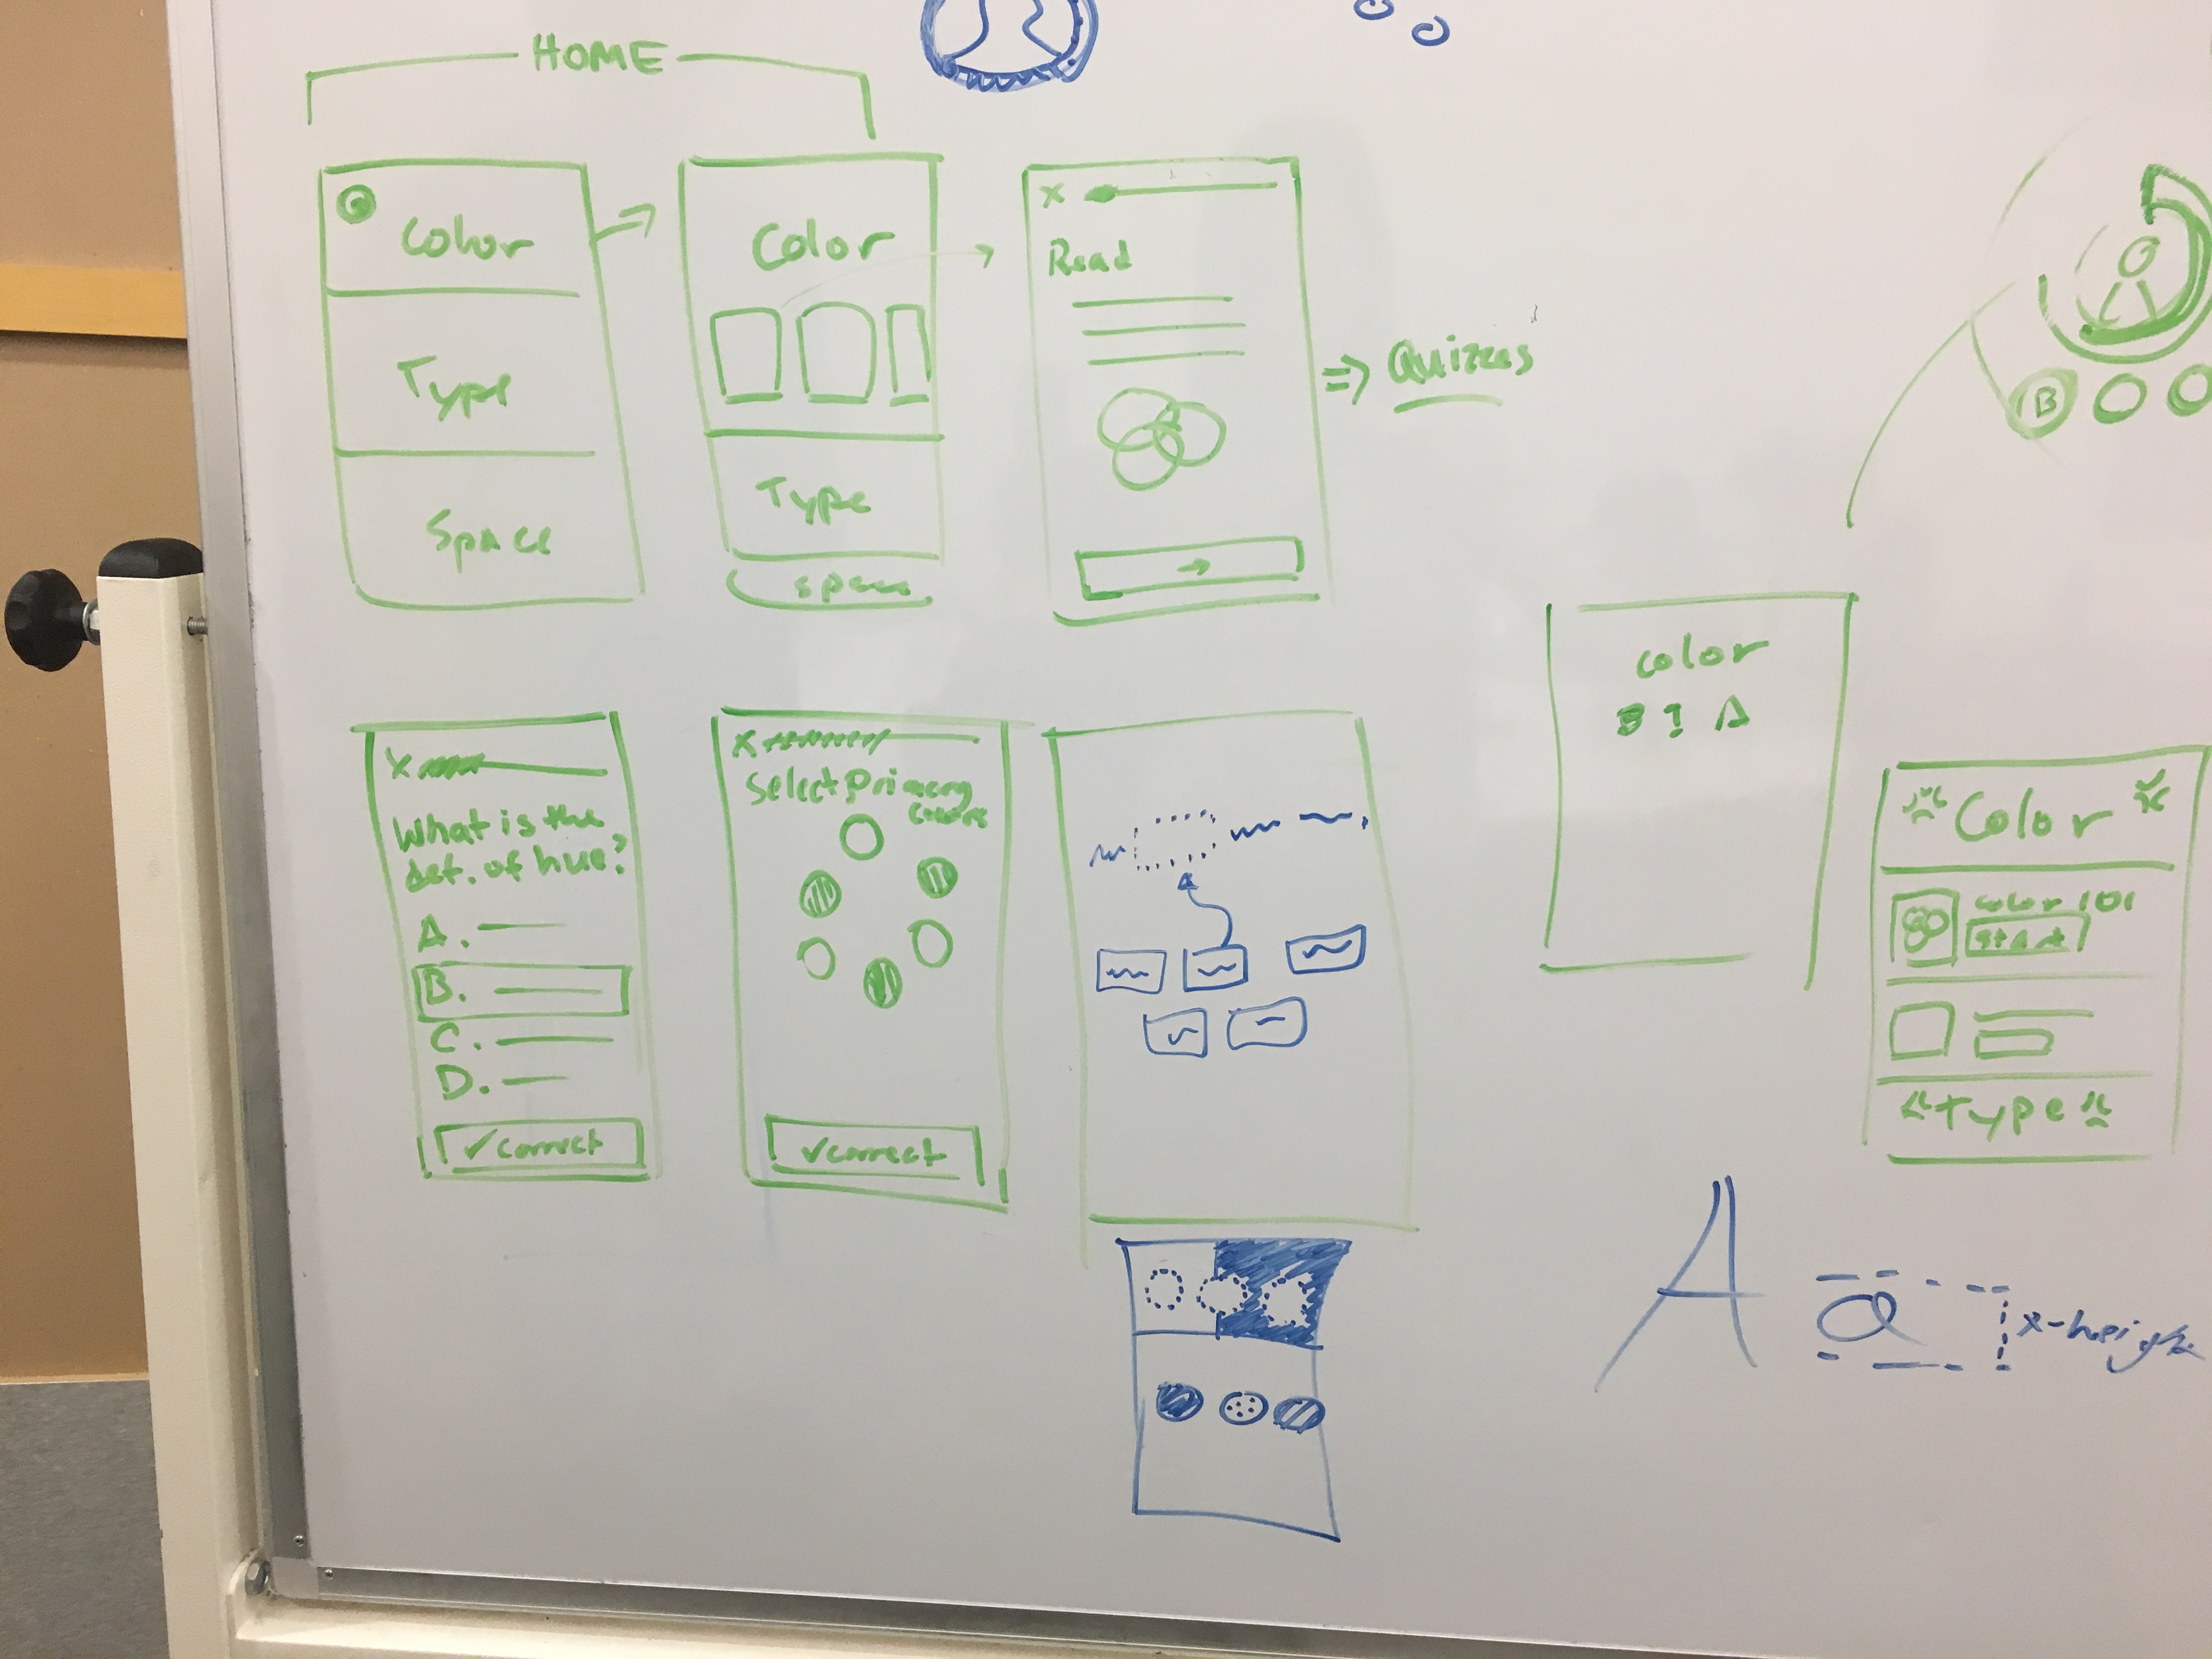 HOME
Color
Type
Space
Color
Type
space
X
Read
→
⇒ Quizzes
B
X
What is the
def. of hue?
A.
B.
C.
D.
✓correct
X
Select Primary
colors
✓correct
color
Color
color 101
start
Type
A
a
x-height